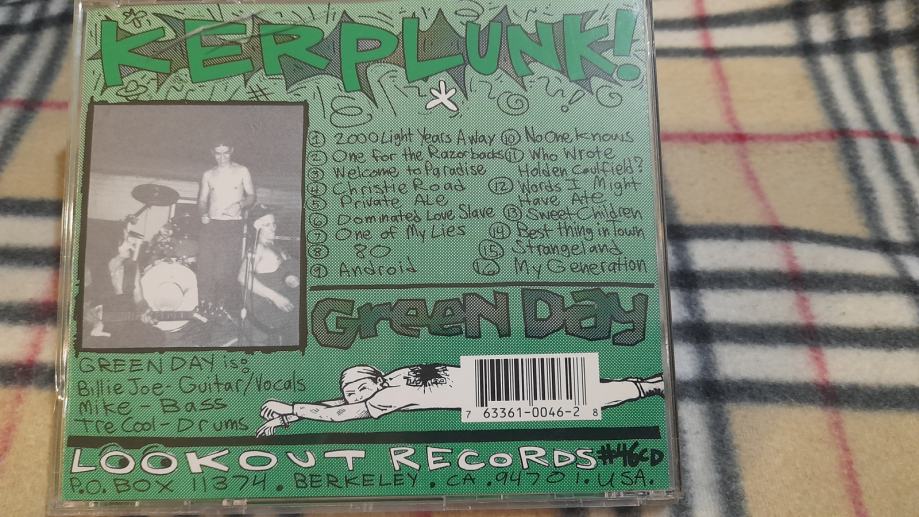 KERPLUNK!
① 2000 Light Years Away
② One for the Razorbacks
③ Welcome to Paradise
④ Christie Road
⑤ Private Ale
⑥ Dominated Love Slave
⑦ One of My Lies
⑧ 80
⑨ Android
⑩ No One Knows
⑪ Who Wrote
Holden Caulfield?
⑫ Words I Might
Have Ate
⑬ Sweet Children
⑭ Best thing in Town
⑮ Strangeland
⑯ My Generation
Green Day
GREEN DAY is:
Billie Joe - Guitar/Vocals
Mike - Bass
Tre Cool - Drums
7 63361-0046-2 8
LOOKOUT RECORDS #46CD
P.O. BOX 11374. BERKELEY. CA. 94701. USA.